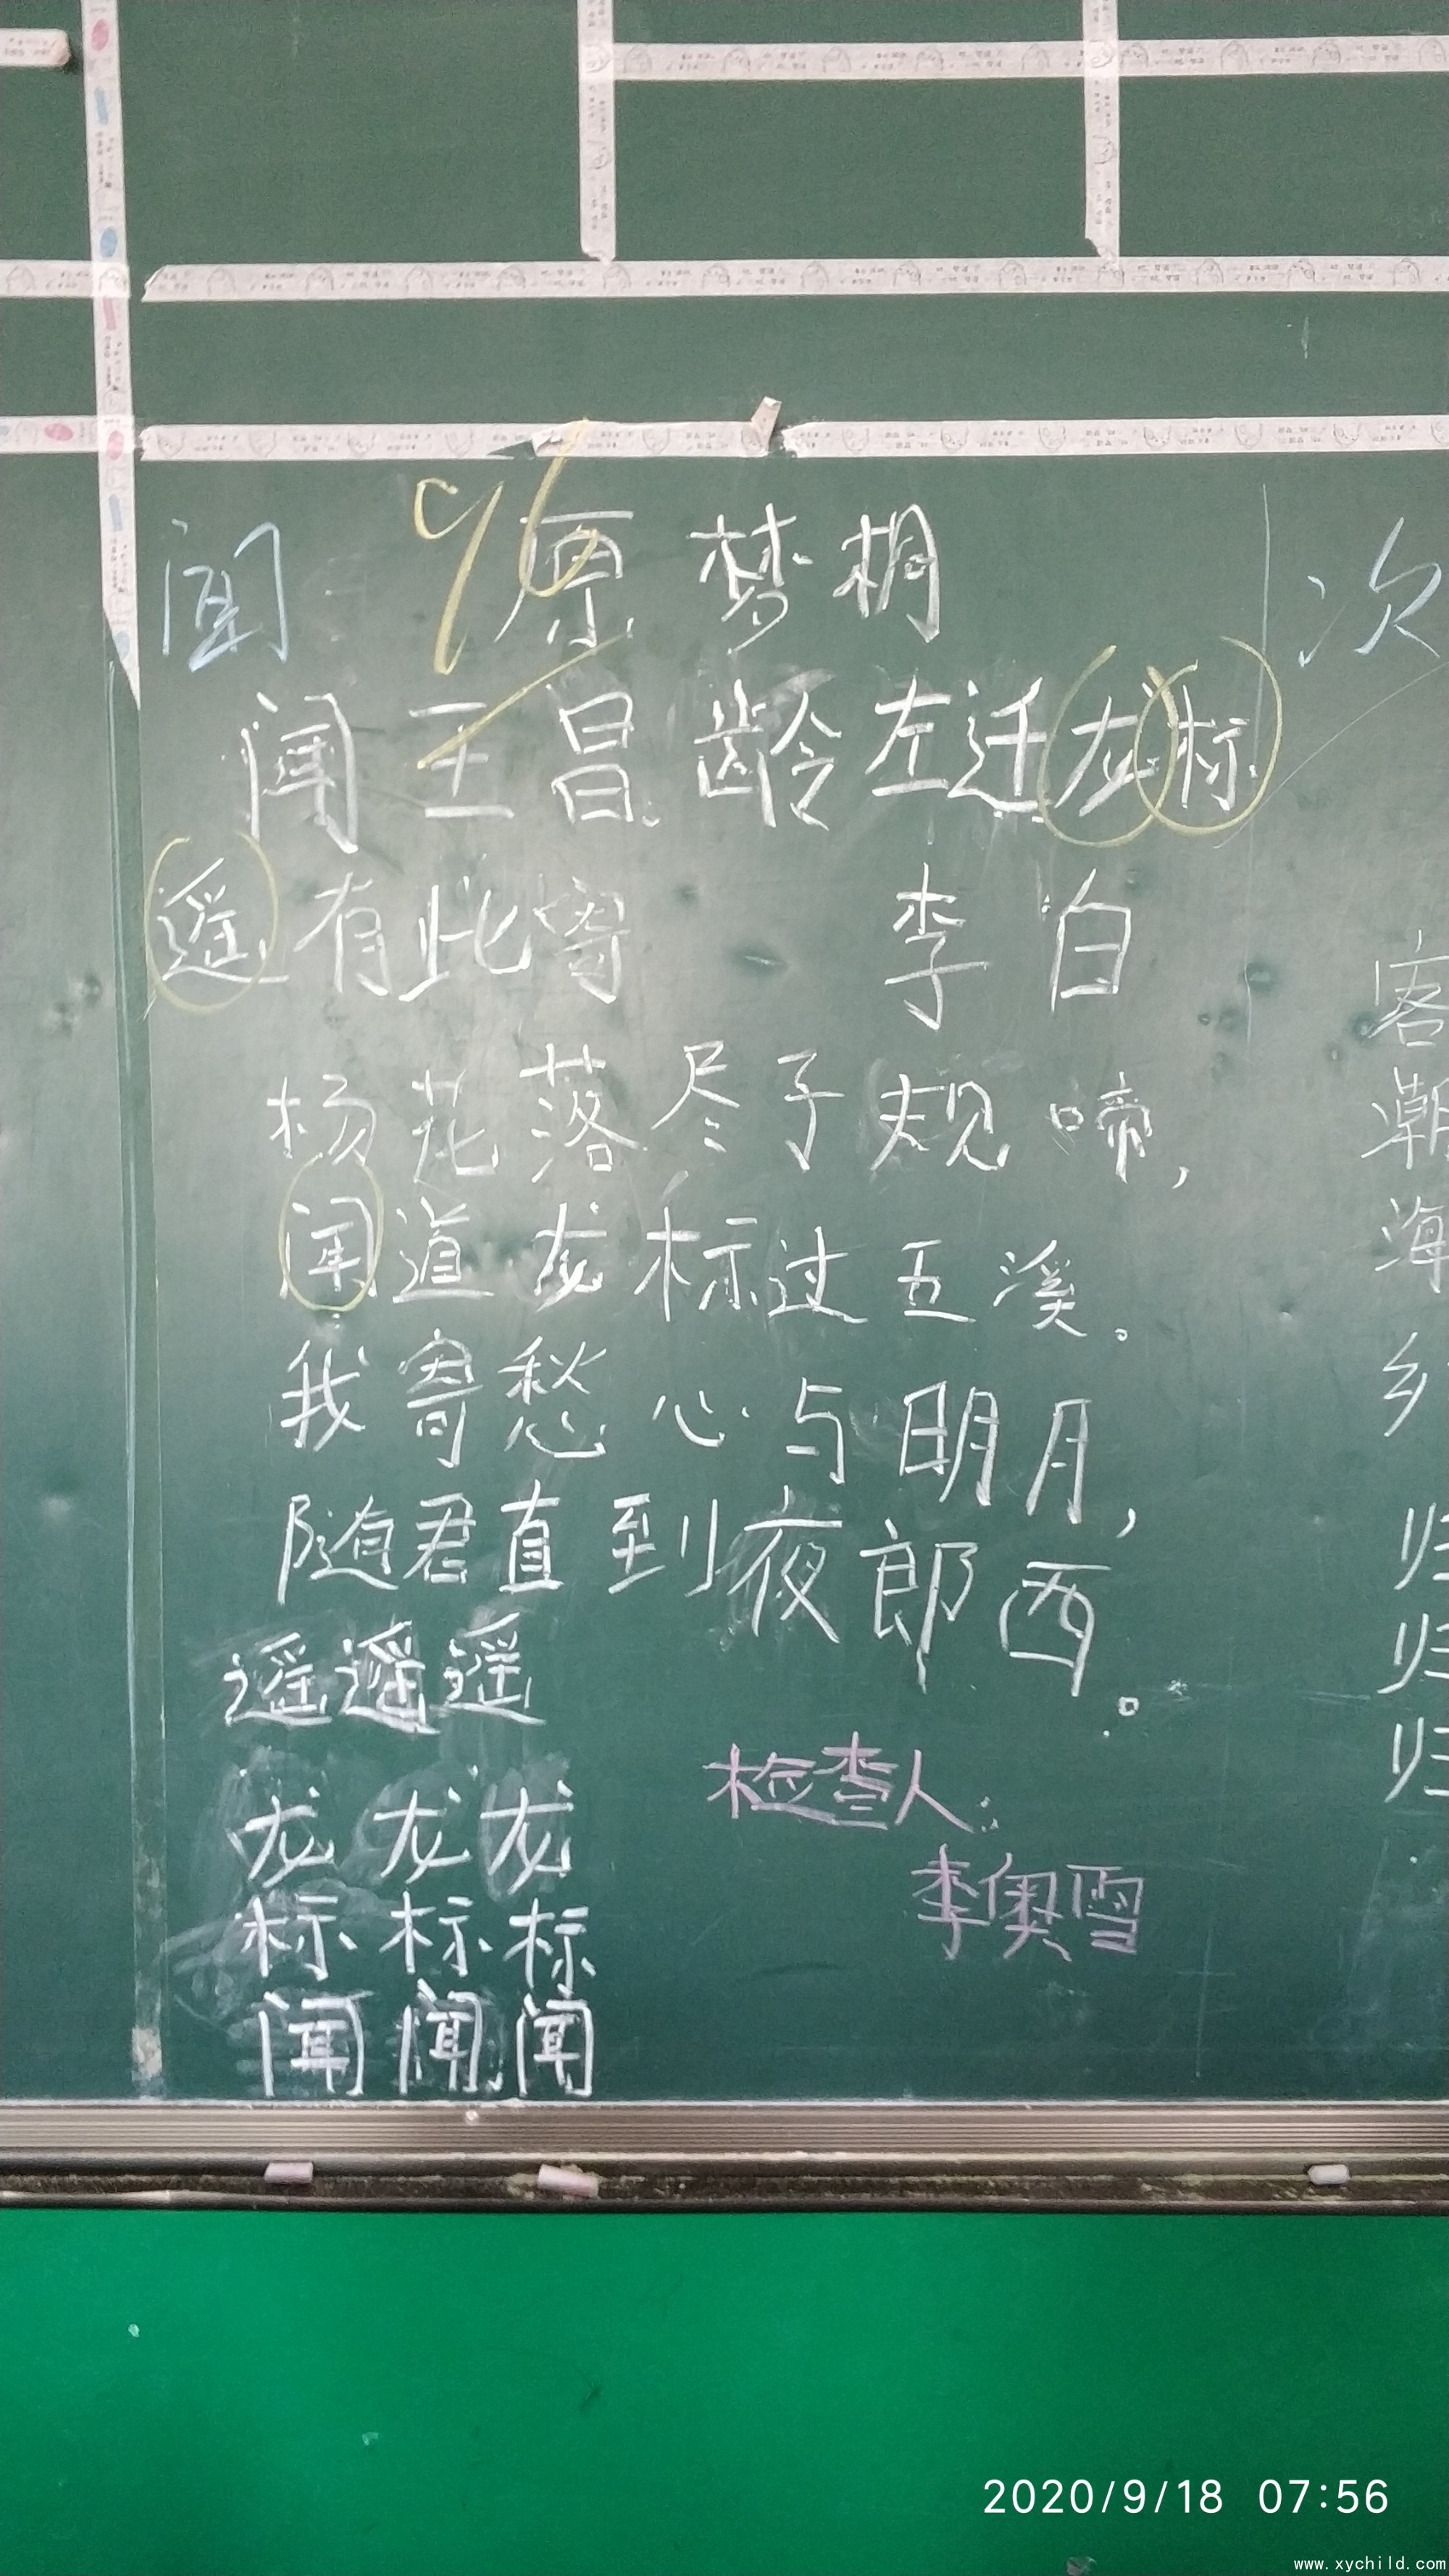 闻 96 原梦桐 次
闻王昌龄左迁龙标
遥有此寄 李白
杨花落尽子规啼,
闻道龙标过五溪。
我寄愁心与明月,
随君直到夜郎西。
遥遥遥
龙龙龙
标标标
闻闻闻
检查人:
李奥雪
客
潮
海
乡
归
归
归
2020/9/18 07:56
www.xychild.com